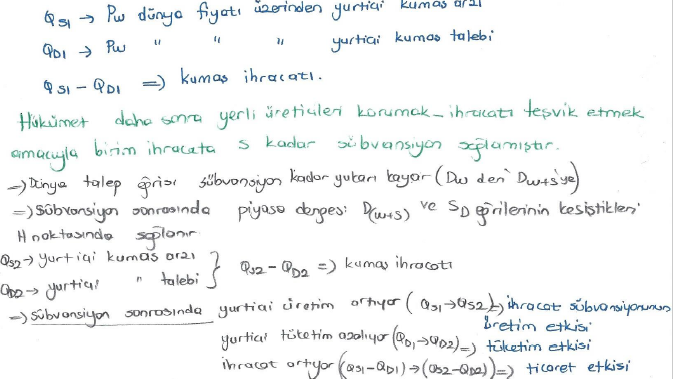 QS1 → Pw dünya fiyatı üzerinden yurtiçi kumaş arzı
QD1 → Pw " " " yurtiçi kumaş talebi
QS1 - QD1 => kumaş ihracatı.
Hükümet daha sonra yerli üreticileri korumak - ihracatı teşvik etmek
amacıyla birim ihracata s kadar sübvansiyon sağlamıştır.
=> Dünya talep eğrisi sübvansiyon kadar yukarı kayar (Dw den Dw+s'ye)
=> Sübvansiyon sonrasında piyasa dengesi D(w+s) ve SD eğrilerinin kesiştikleri
H noktasında sağlanır
QS2 → yurtiçi kumaş arzı
QD2 → yurtiçi " talebi } QS2 - QD2 => kumaş ihracatı
=> Sübvansiyon sonrasında yurtiçi üretim artıyor (QS1→QS2) => ihracat sübvansiyonunun
üretim etkisi
yurtiçi tüketim azalıyor (QD1→QD2) => tüketim etkisi
ihracat artıyor (QS1-QD1)→(QS2-QD2) => ticaret etkisi